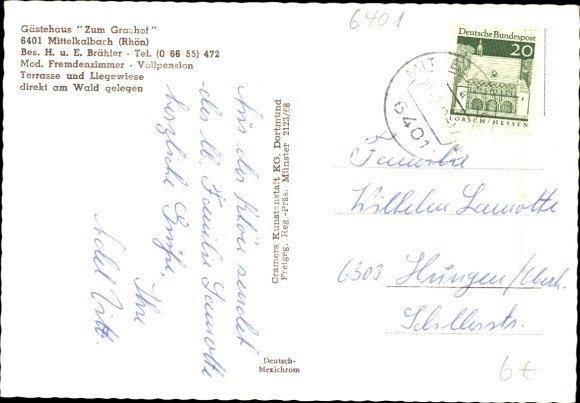 Gästehaus "Zum Grashof"
6401 Mittelkalbach (Rhön)
Bes. H. u. E. Brähler - Tel. (0 66 55) 472
Mod. Fremdenzimmer - Vollpension
Terrasse und Liegewiese
direkt am Wald gelegen
Aus der Rhön sendet
der lb. Familie Lamotte
herzliche Grüße,
Ihre
Adel
Cramers Kunstanstalt KG, Dortmund
Freigeg. Reg.-Präs. Münster 2123/68
Deutsch-
Mexichrom
6401
Deutsche Bundespost
20
LORSCH/HESSEN
MITTE
6401
Familie
Wilhelm Lamotte
6303 Hungen/Oberh.
Schillerstr.
6€